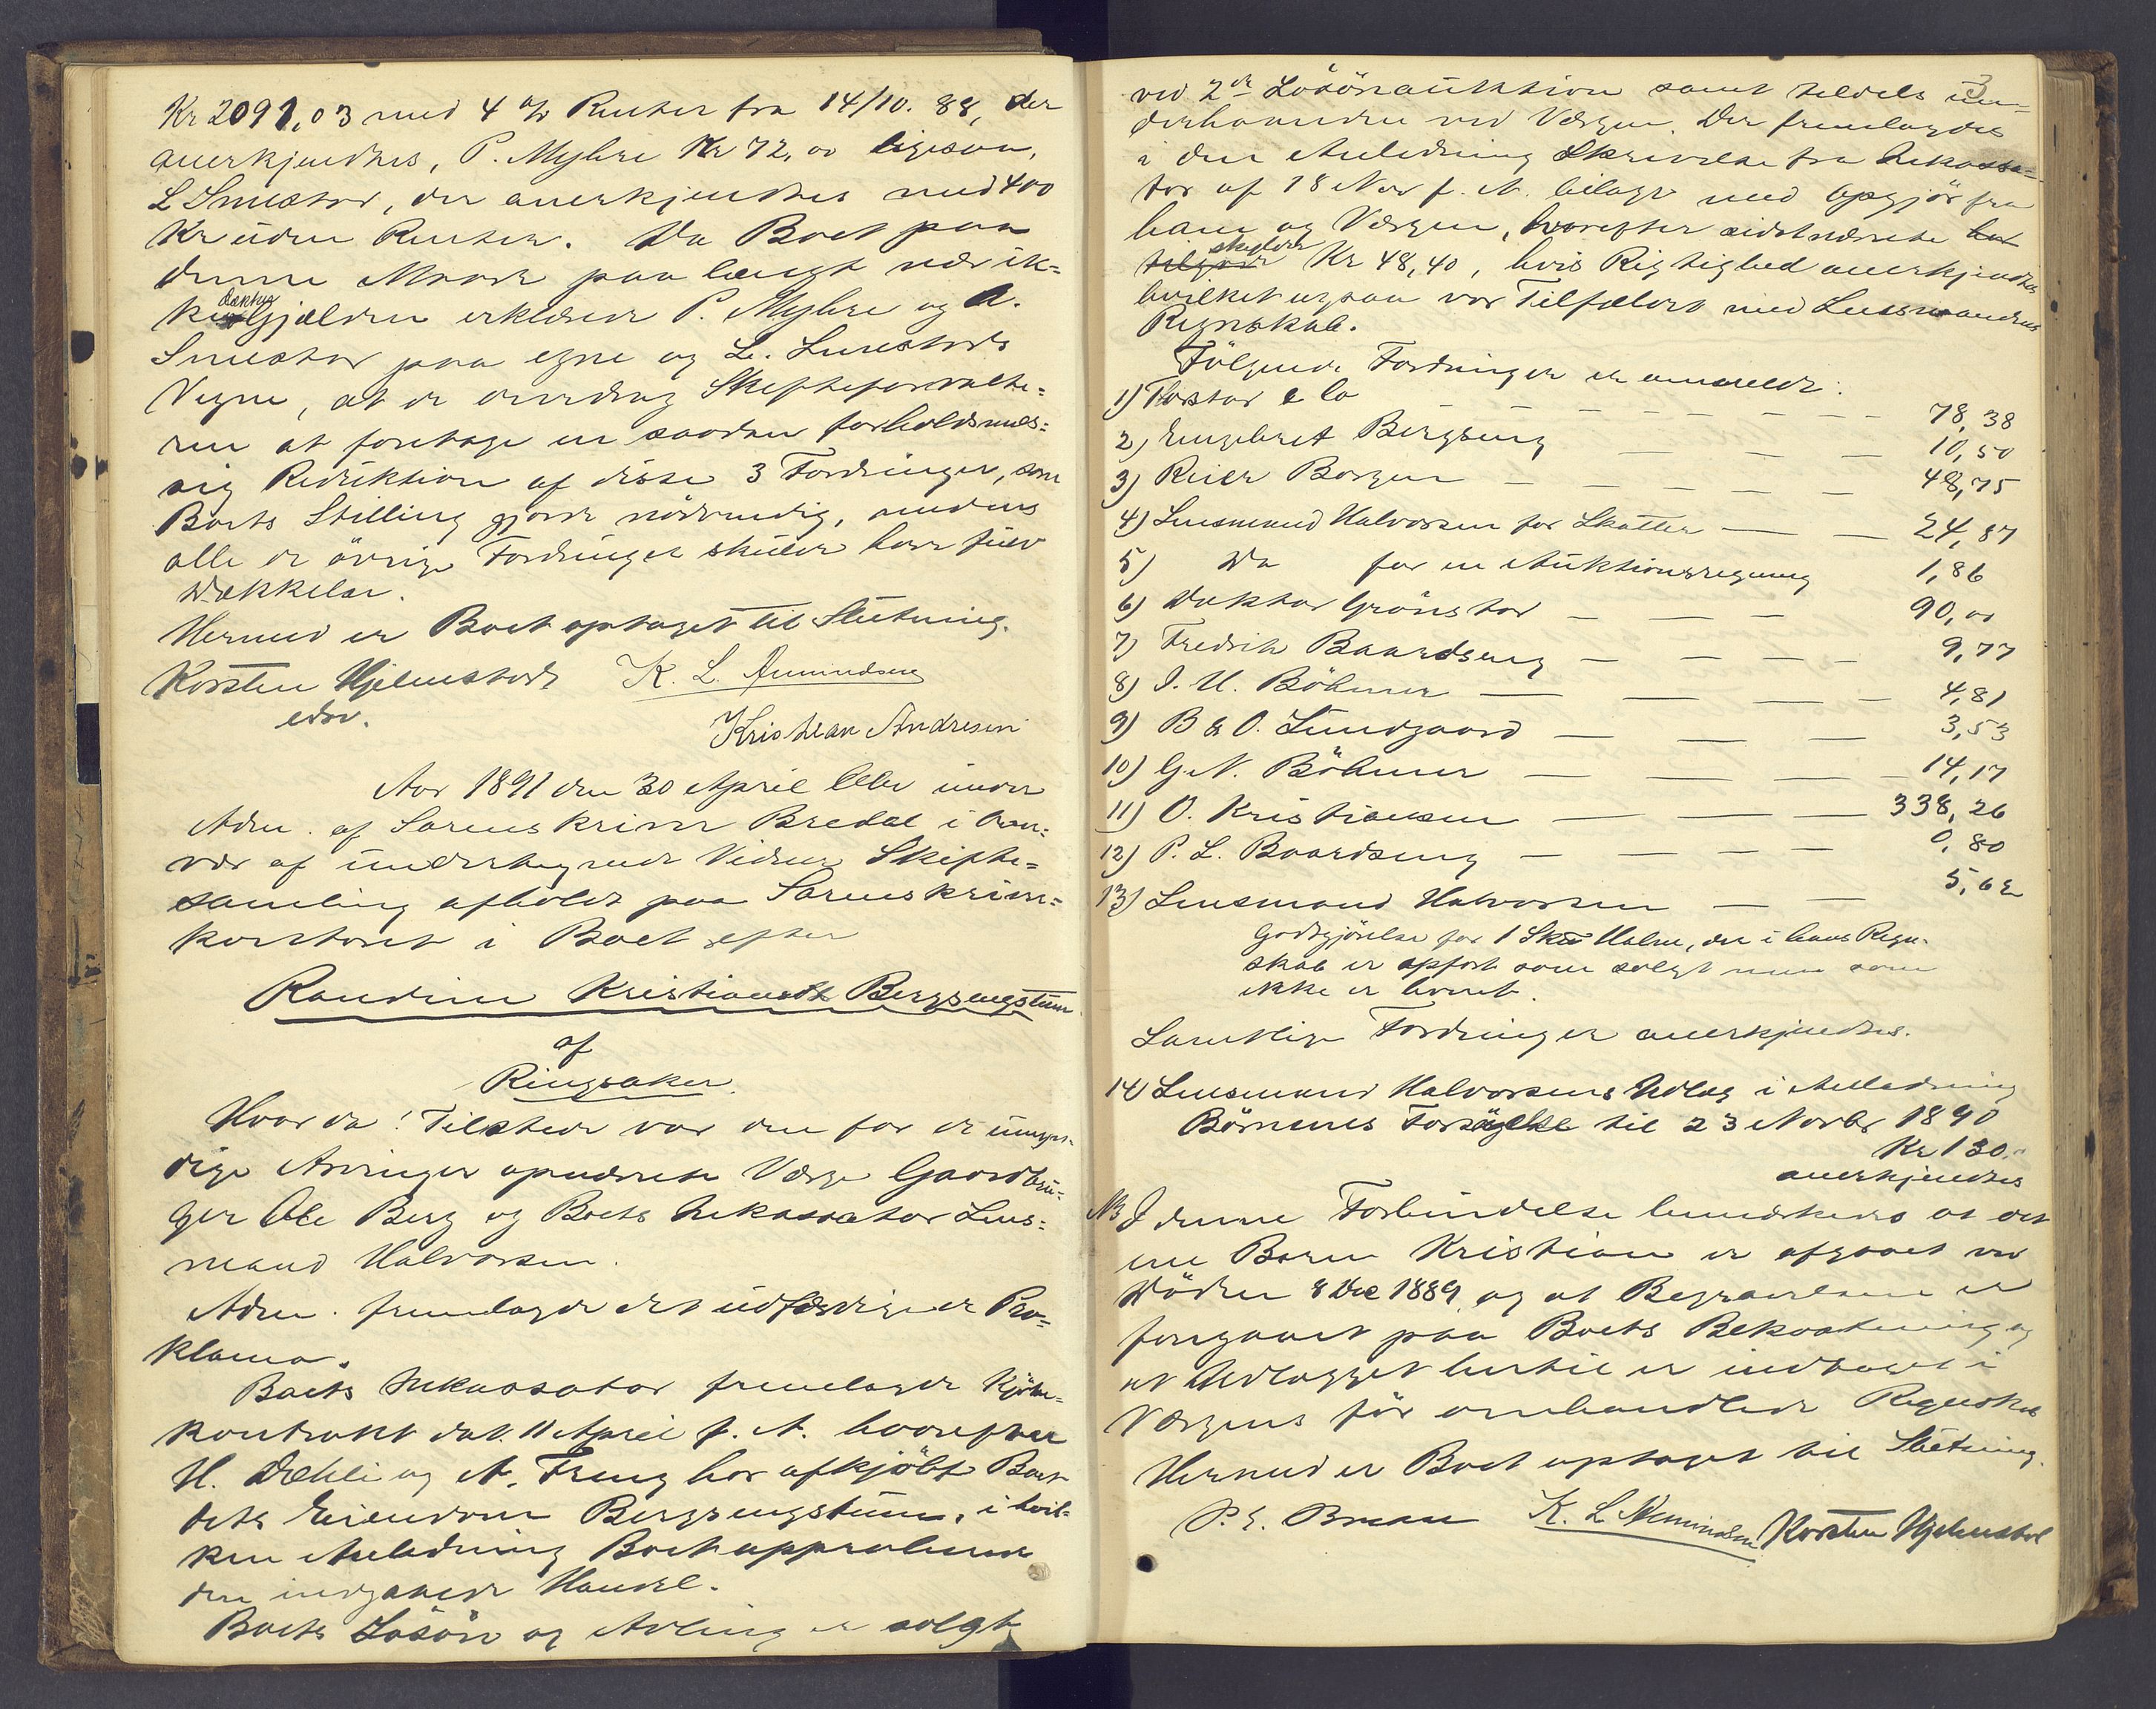 Kr 2091,03 med 4 % Renter fra 14/10. 88, der
anerkjendtes, P. Myhre Kr 72,00 ligesaa,
L Smestad, der anerkjendtes med 400
Kr uden Renter. Da Boet paa
denne Maade paa langt nær ik=
ke dækker Gjælden erklærede P. Myhre og A.
Smestad paa egne og L. Smestads
Vegne, at de overdrog Skifteforvalte=
ren at foretage en saadan forholdsmæs=
sig Reduktion af disse 3 Fordringer, som
Boets Stilling gjorde nødvendig, medens
alle de øvrige Fordringer skulde have fuld
Dækkelse.
Hermed er Boet optaget til Slutning.
Korsten Hjelmstad K. L. Amundsen
edsv.
Kristian Andresen
Aar 1891 den 30 April blev under
Adm. af Sorenskriver Bredal i Over=
vær af undertegnede Vidner Skifte=
samling afholdt paa Sorenskriver=
kontoret i Boet efter
Randine Kristiansdt Bergsengstuen
af
Ringsaker.
Hvorda! Tilstede var den for de umyn=
dige Arvinger opnævnte Værge Gaardbru=
ger Ole Berg og Boets Inkassator Lens=
mand Halvorsen.
Adm. fremlagde det udfærdigede Pro=
klama.
Boets Inkassator fremlagde Kjøbe=
kontrakt dat. 11 April f. A. hvorefter
H. Dæhli og A. Freng har afkjøbt Boet
dets Eiendom Bergsengstuen, i hvil=
ken Anledning Boet approberede
den indgaaede Handel.
Boets Løsøre og Avling er solgt
ved 2de Løsøreauktion samt tildels un=
derhaanden ved Værgen. Der fremlagdes
i den Anledning Skrivelse fra Inkassa=
tor af 18 Nov f. A. bilagt med Opgjør fra
ham og Værgen, hvorefter sidstnævnte
skylder Kr 48,40, hvis Rigtighed anerkjendtes
hvilket ogsaa var Tilfældet med Lensmandens
Regnskab.
Følgende Fordringer er anmeldt:
1) Thorstad & Co 78,38
2) Engebret Bergseng 10,50
3) Reier Borgen 48,75
4) Lensmand Halvorsen for Skatter 24,87
5) Do for en Auktionsregning 1,86
6) Doktor Grønstad 90,00
7) Fredrik Baardseng 9,77
8) I. U. Böhmer 4,81
9) B & O. Lundgaard 3,53
10) G. N. Böhmer 14,17
11) O. Kristiansen 338,26
12) P. L. Baardseng 0,80
13) Lensmand Halvorsen 5,62
Godtgjørelse for 1 Halm, der i hans Regn-
skab er opført som solgt men som
ikke er levert.
Samtlige Fordringer anerkjendtes.
14) Lensmand Halvorsens Udlæg i Anledning
Børnenes Forsørgelse til 23 Novbr 1890
Kr 130.-
anerkjendtes
NB I denne Forbindelse bemærkedes at det
ene Barn Kristian er afgaaet ved
Døden 8 Dec 1889 og at Begravelsen er
foregaaet paa Boets Bekostning og
at Udlægget hertil er indtaget i
Værgens før omhandlede Regnskab
Hermed er Boet optaget til Slutning.
K. L. Amundsen Korsten Hjelmstad